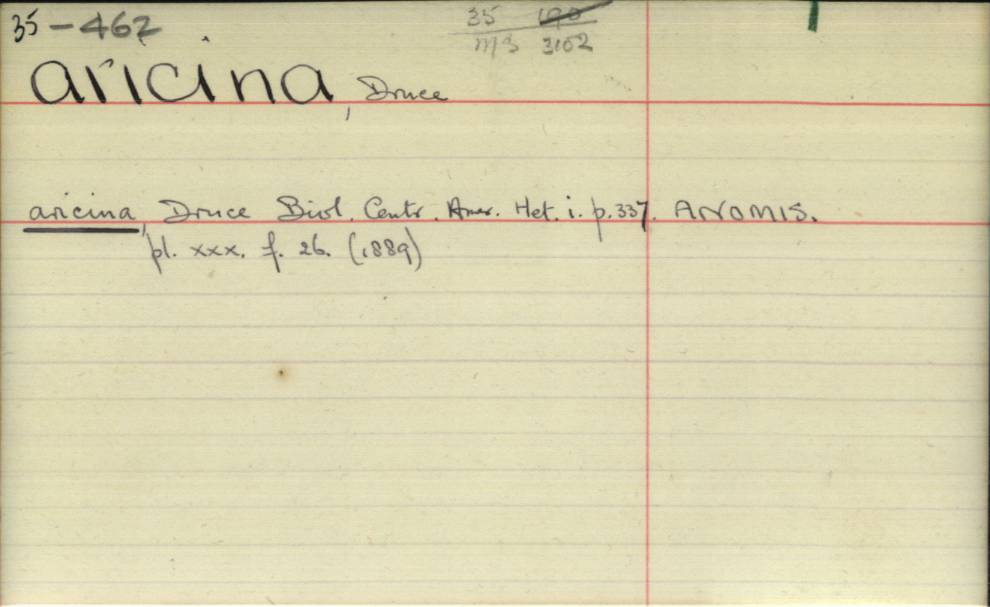 35-462
35 190
MS 3102
aricina, Druce
aricina, Druce Biol. Centr. Amer. Het. i. p. 337. ANOMIS.
pl. xxx. f. 26. (1889)